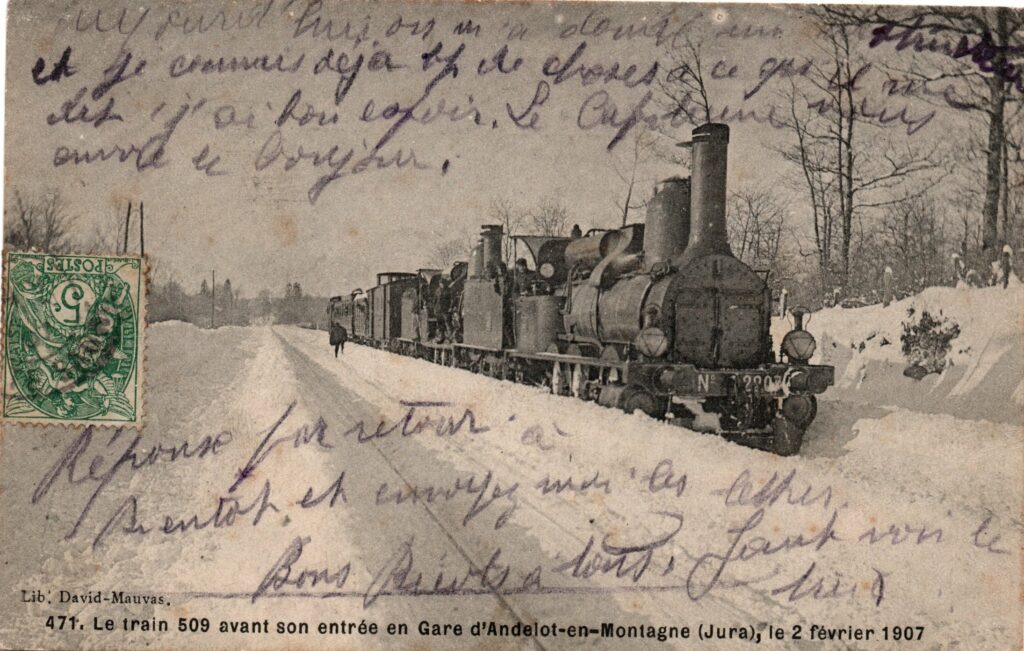 Aujourd'hui on m'a donné une
et je connais déjà bp de choses à ce qu'il me
dit j'ai bon espoir. Le Capitaine vous
envoie le bonjour.
POSTES
5
N° 2207
Réponse par retour à
Bientot et envoyez moi les lettres
Bons à tous. faut voir le
Lib. David-Mauvas.
471. Le train 509 avant son entrée en Gare d'Andelot-en-Montagne (Jura), le 2 février 1907